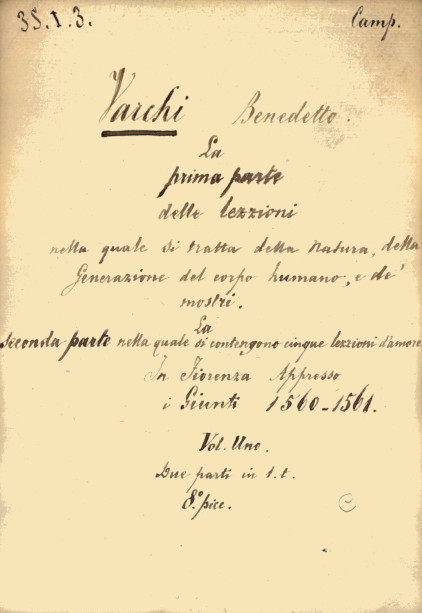 35.I.3. Camp.
Varchi Benedetto.
La
prima parte
delle lezzioni
nella quale si tratta della natura, della
Generazione del corpo humano, e de'
mostri.
La
Seconda parte nella quale si contengono cinque lezzioni d'amore
In Fiorenza Appresso
i Giunti 1560-1561.
Vol. Uno.
Due parti in 1. t.
8.° picc.
C